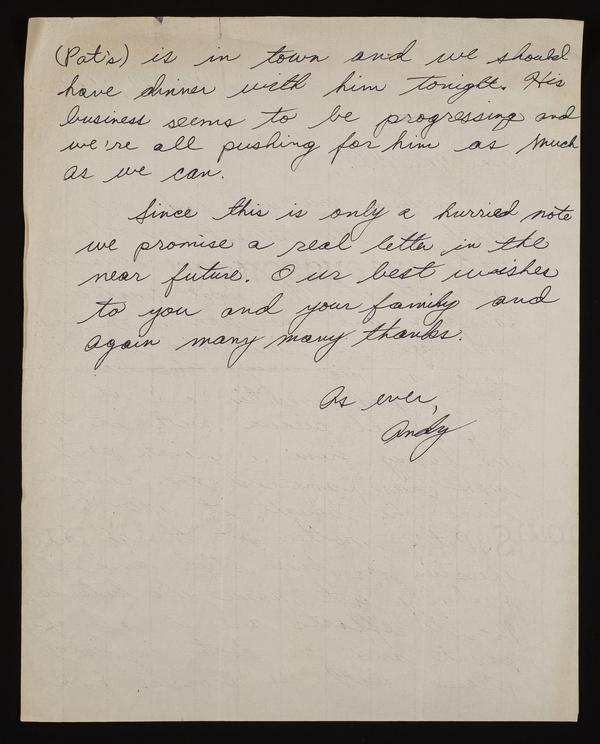 (Pat's) is in town and we should
have dinner with him tonight. His
business seems to be progressing and
we're all pushing for him as much
as we can.
Since this is only a hurried note
we promise a real letter in the
near future. Our best wishes
to you and your family and
again many many thanks.
As ever,
Andy